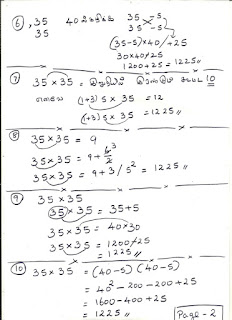 ⑥ , 35 35 -5
35 35 -5
(35-5)×40/+25
30×40/25
1200+25 = 1225 //
⑦ 35×35 = 10
(1+3) 5 × 35 = 12
(1+3) 5 × 35 = 1225 //
⑧ 35×35 = 9
35×35 = 9+
35×35 = 9+3/5² = 1225 //
⑨ 35×35
35×35 = 35+5
35×35 = 40×30
35×35 = 1200/25
= 1225 //
⑩ 35×35 = (40-5) (40-5)
= 40² -200 -200 +25
= 1600 -400 +25
= 1225 //
Page - 2